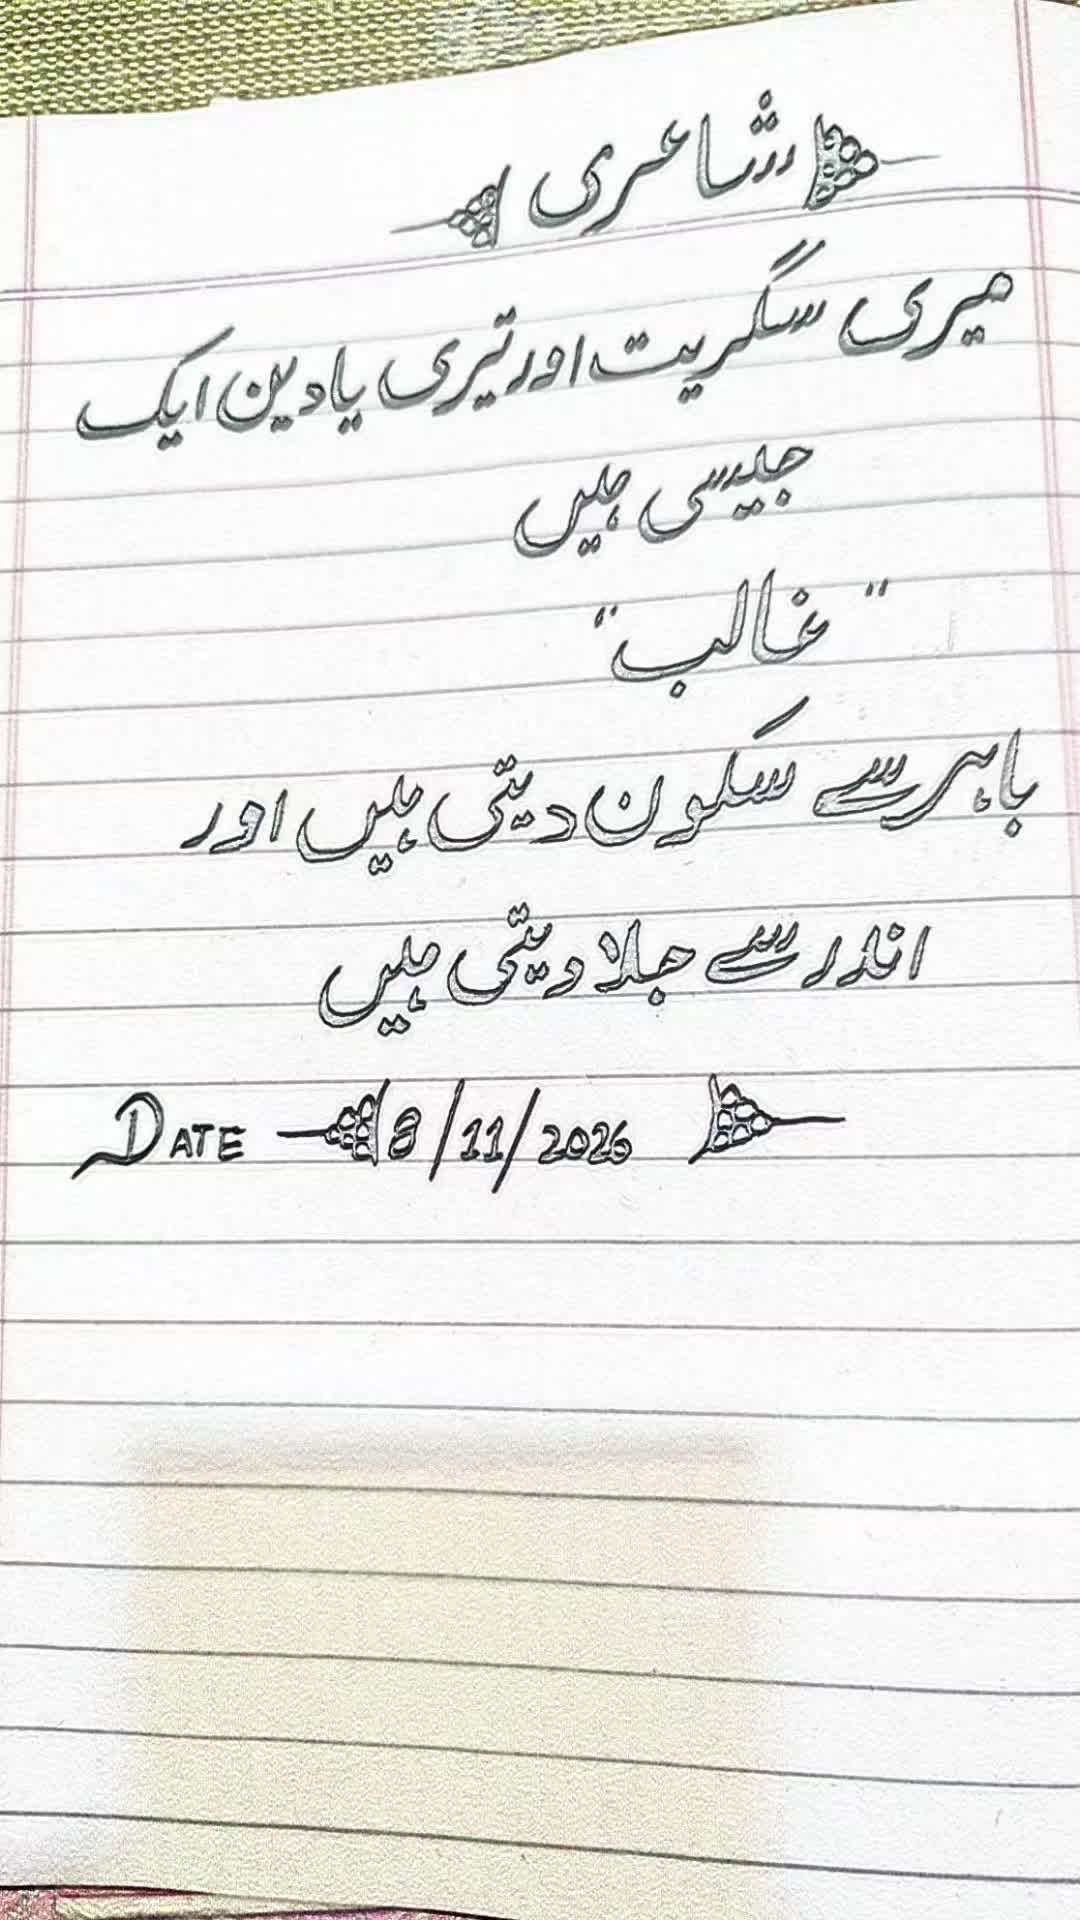 شاعری
میری سگریت اور تیری یادین ایک
جیسی ہیں
"غالب"
باہر سے سکون دیتی ہیں اور
اندر سے جلا دیتی ہیں
DATE 8/11/2026